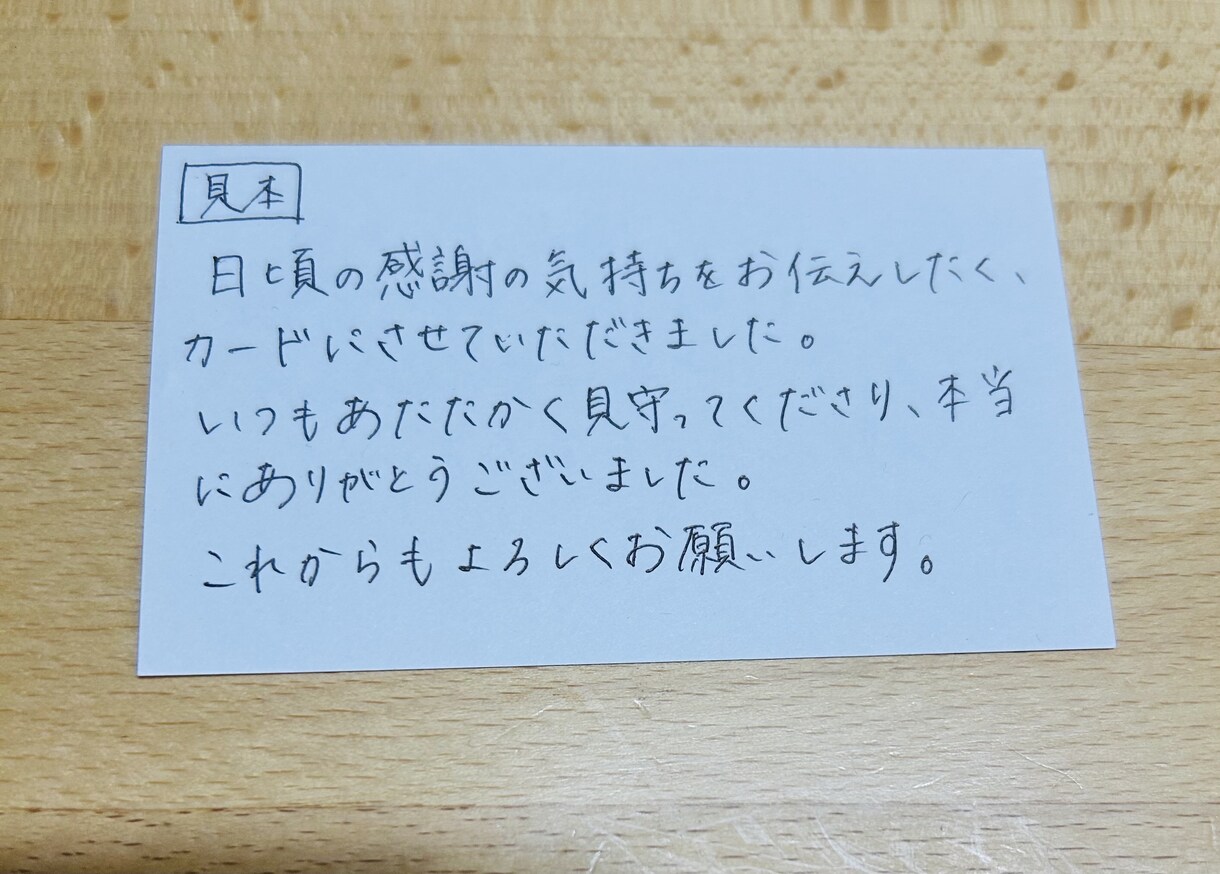 見本
日頃の感謝の気持ちをお伝えしたく、
カードにさせていただきました。
いつもあたたかく見守ってくださり、本当
にありがとうございました。
これからもよろしくお願いします。